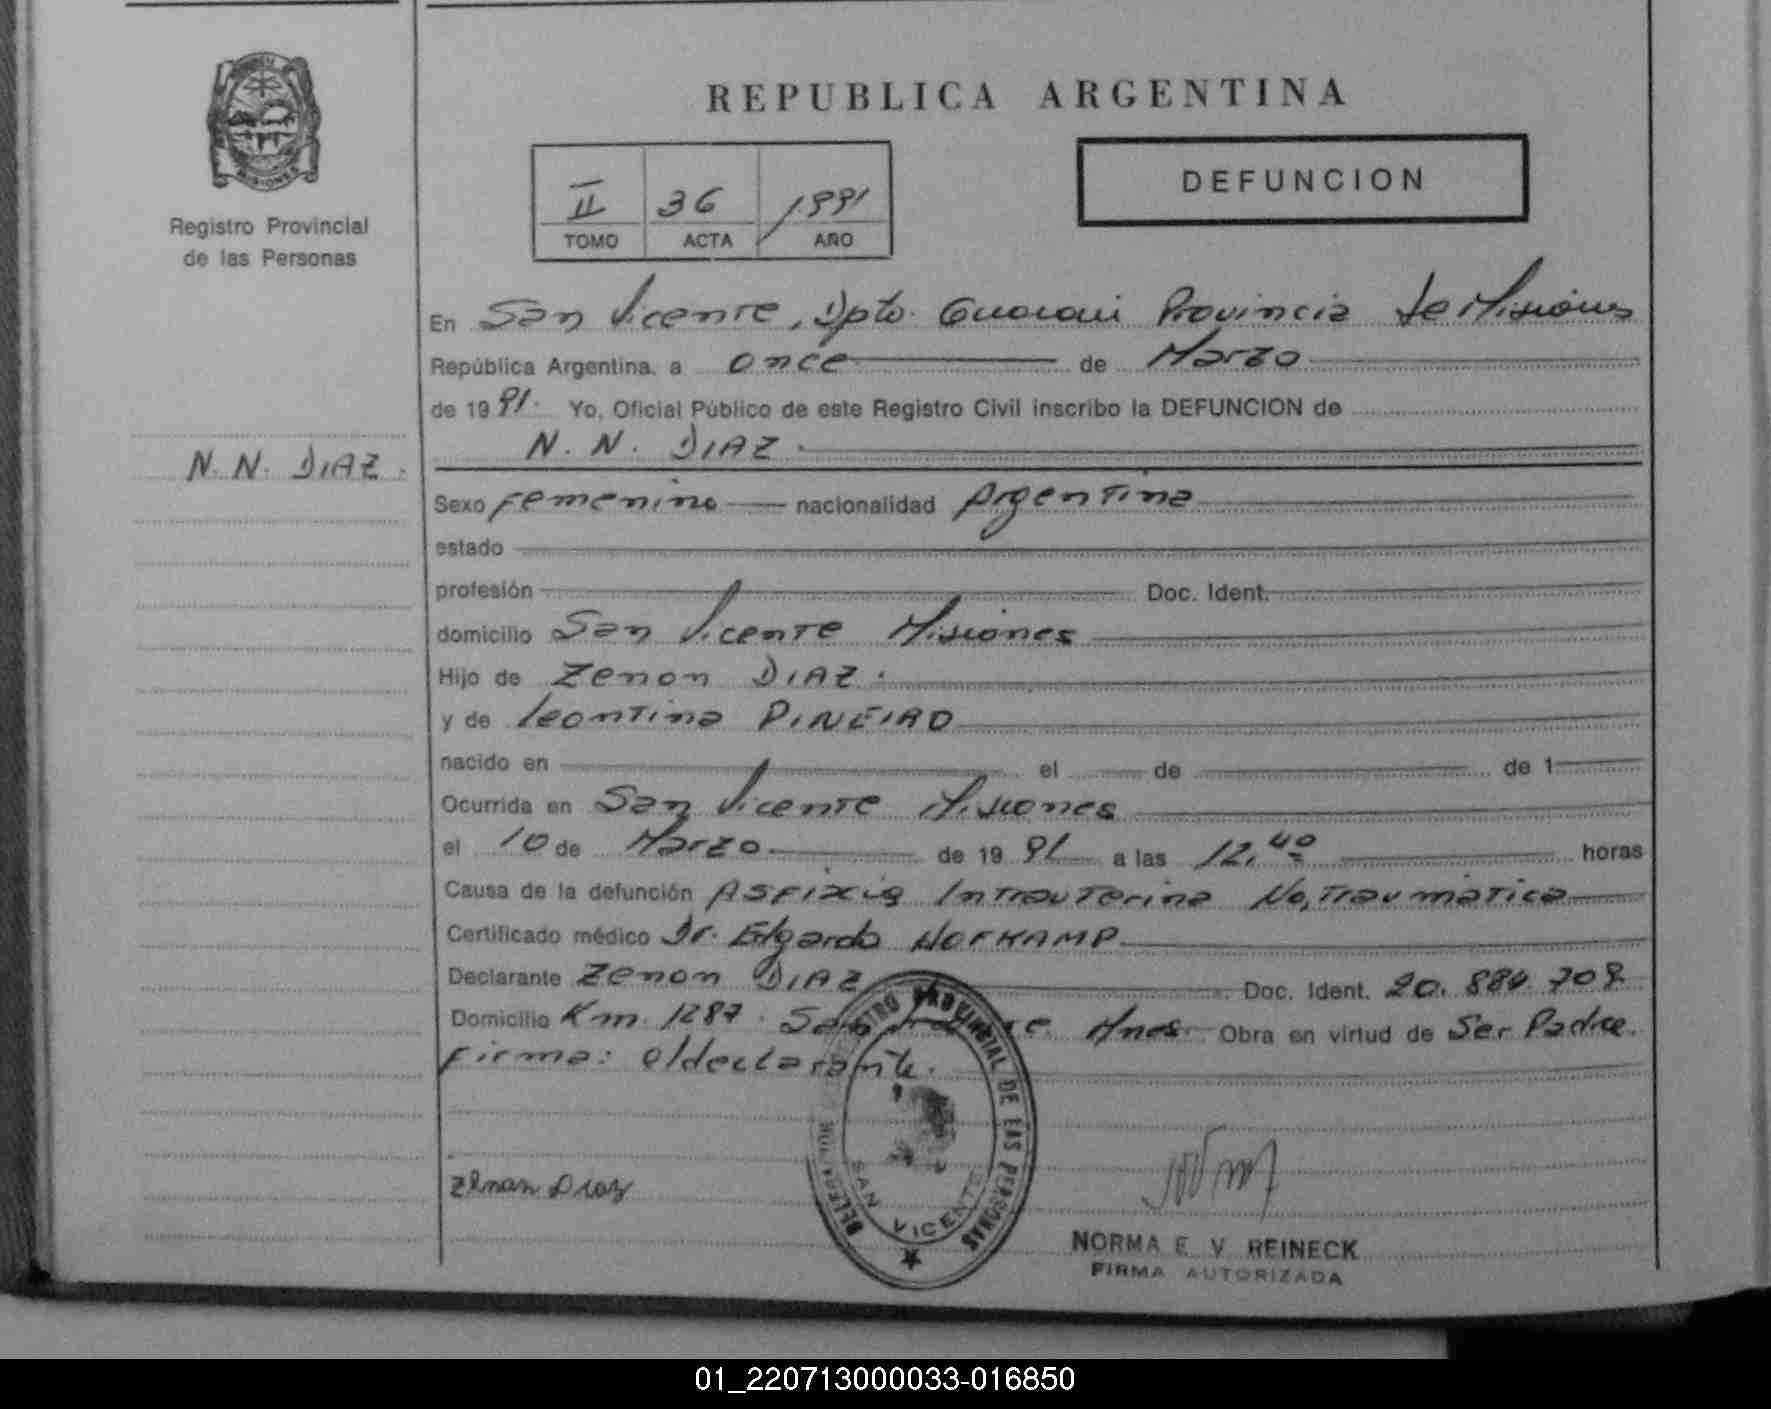 REPUBLICA ARGENTINA
MISIONES
Registro Provincial
de las Personas
II 36 1991
TOMO ACTA AÑO
DEFUNCION
En San Vicente, Dpto. Guarani Provincia de Misiones
República Argentina, a once de Marzo
de 1991. Yo, Oficial Público de este Registro Civil inscribo la DEFUNCION de
N. N. DIAZ.
N. N. DIAZ.
Sexo Femenino nacionalidad Argentina
estado
profesión Doc. Ident.
domicilio San Vicente Misiones
Hijo de Zenon DIAZ.
y de Leontina PINEIRO
nacido en el de de 1
Ocurrida en San Vicente Misiones
el 10 de Marzo de 1991 a las 12,40 horas
Causa de la defunción ASFIXIA Intrauterina No, Traumática
Certificado médico Dr. Edgardo HOFKAMP
Declarante Zenon DIAZ Doc. Ident. 20.884.708
Domicilio Km. 1287. San Vicente Mnes. Obra en virtud de Ser Padre.
Firma: el declarante.
REGISTRO PROVINCIAL DE LAS PERSONAS
SAN VICENTE
Zenon Diaz
NORMA E V REINECK
FIRMA AUTORIZADA
01_220713000033-016850